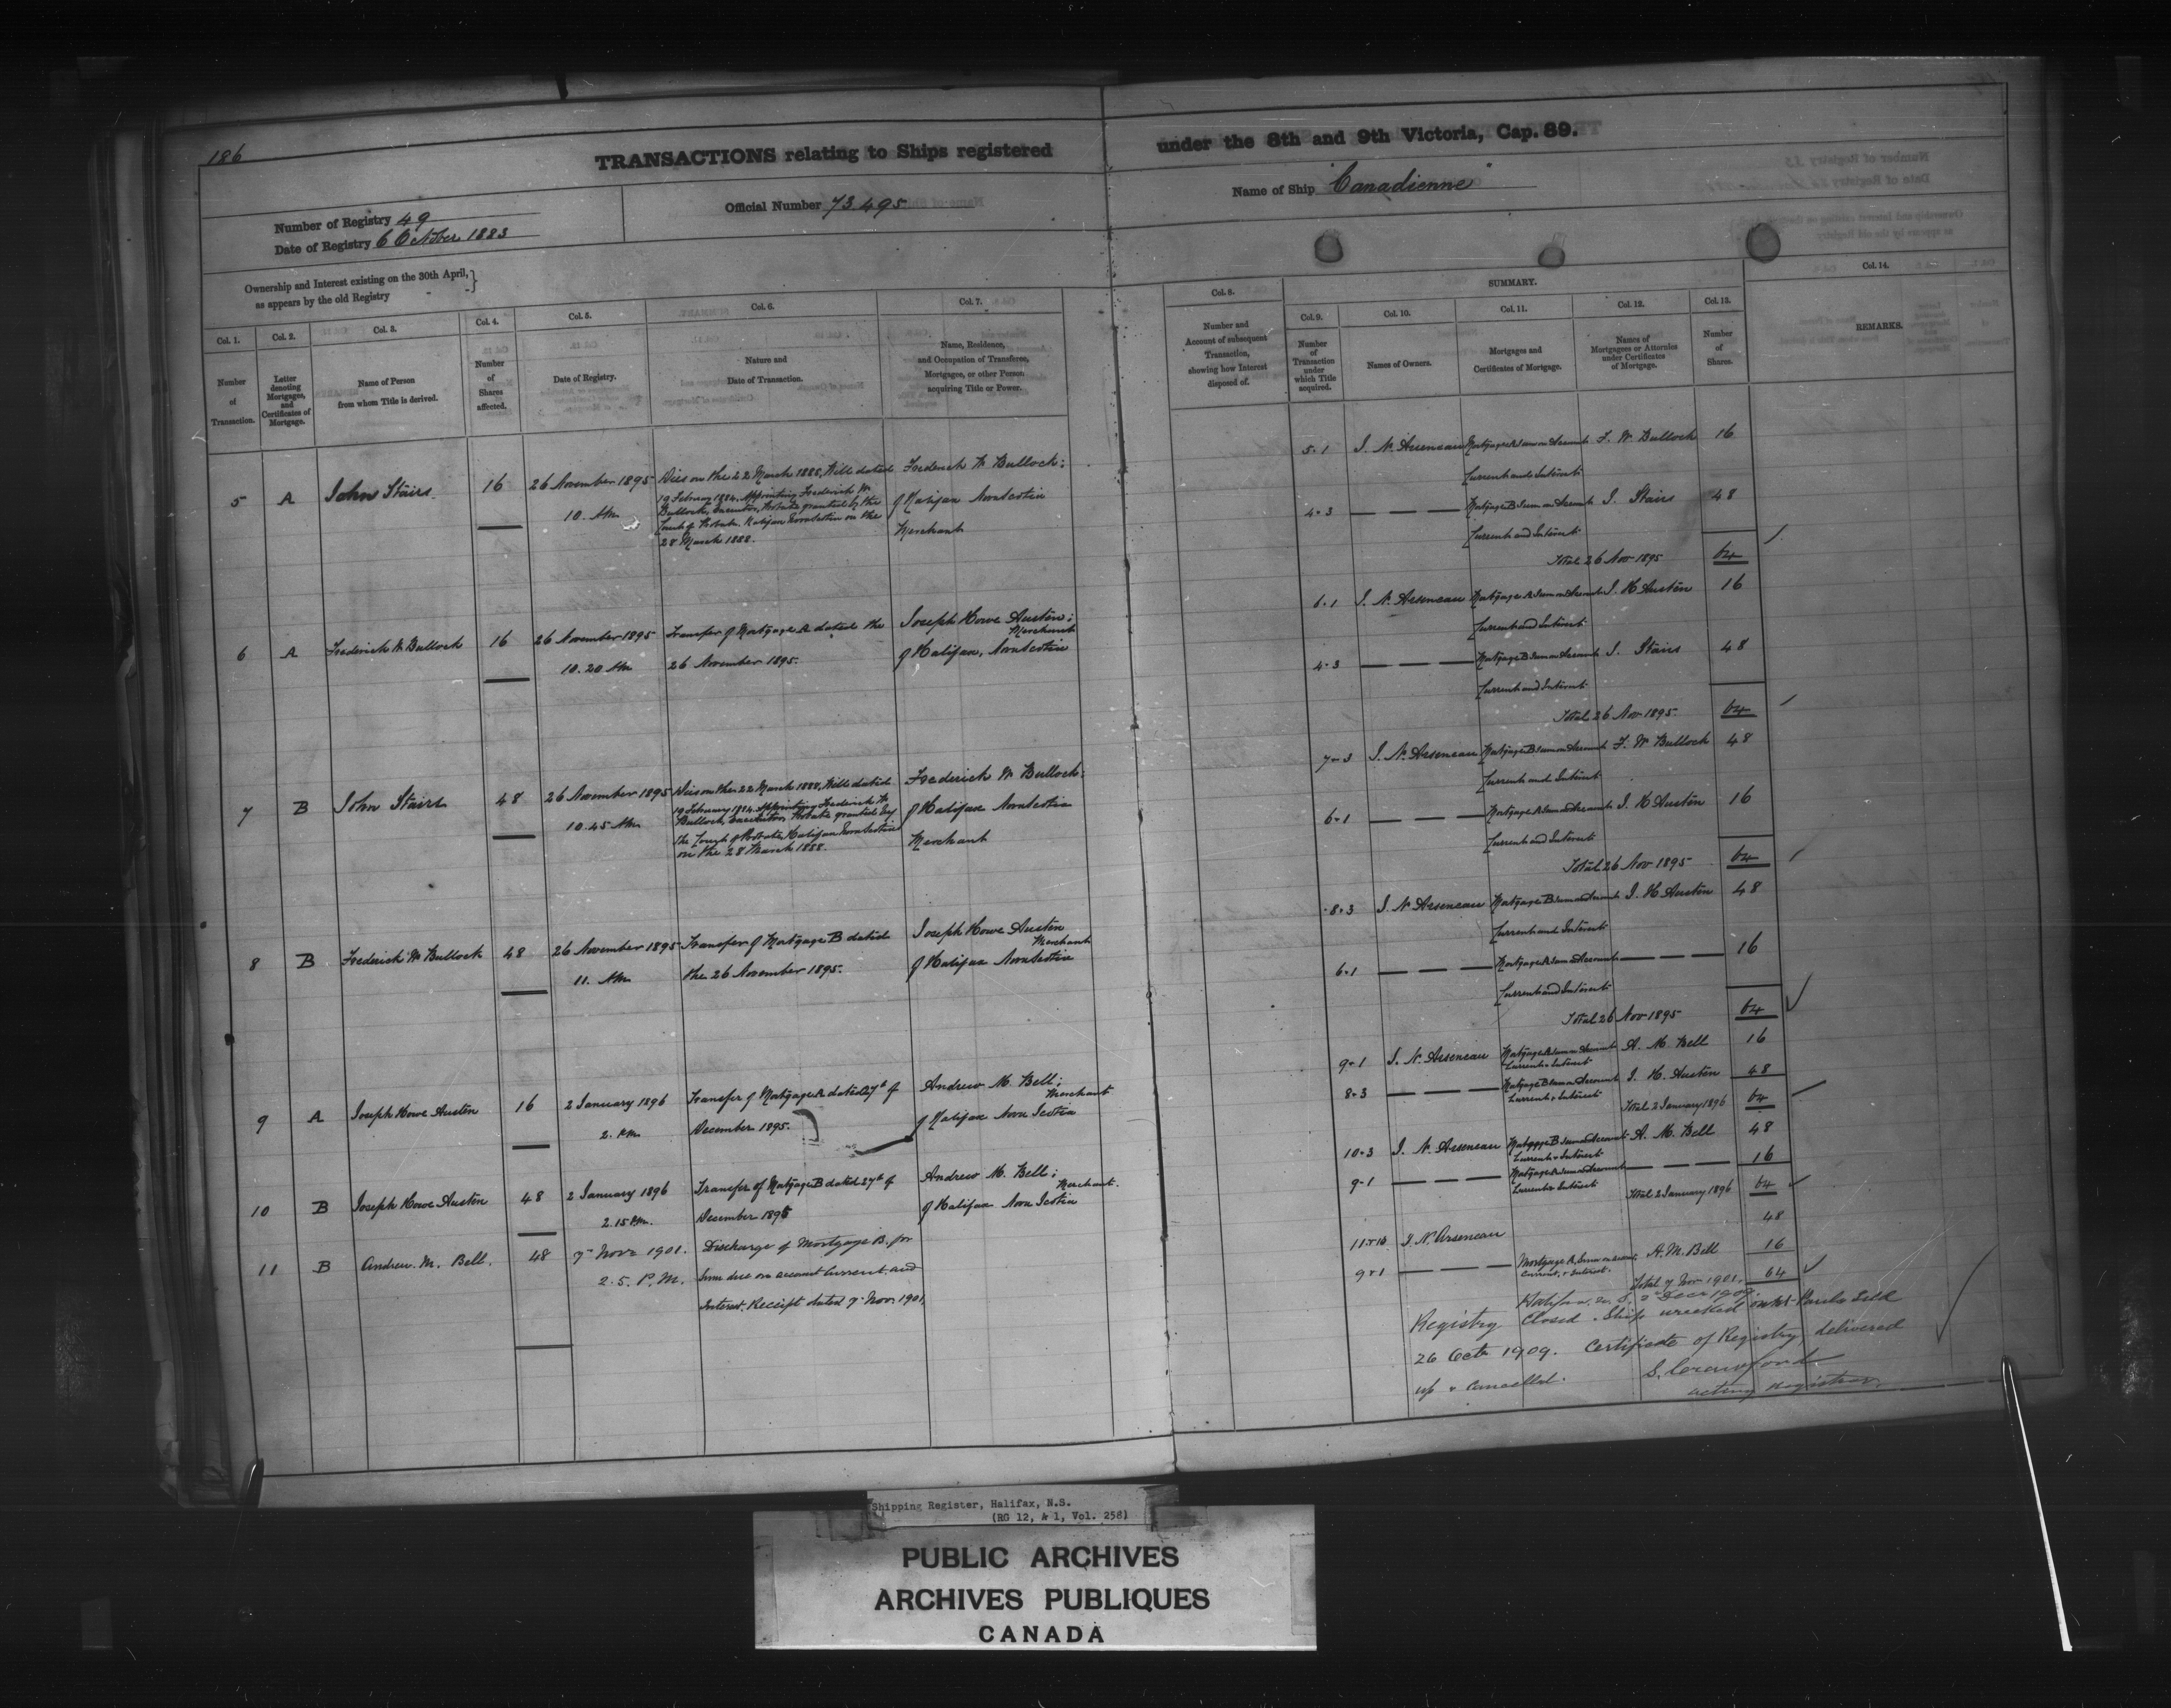 186
TRANSACTIONS relating to Ships registered under the 8th and 9th Victoria, Cap. 89.
Number of Registry 49
Date of Registry 6 October 1883
Official Number 73.495
Name of Ship "Canadienne"
Ownership and Interest existing on the 30th April,
as appears by the old Registry
Col. 1.
Number
of
Transaction.
Col. 2.
Letter
denoting
Mortgages,
and
Certificates of
Mortgage.
Col. 3.
Name of Person
from whom Title is derived.
Col. 4.
Number
of
Shares
affected.
Col. 5.
Date of Registry.
Col. 6.
Nature and
Date of Transaction.
Col. 7.
Name, Residence,
and Occupation of Transferee,
Mortgagee, or other Person
acquiring Title or Power.
5 A John Stairs 16
26 November 1895
10. AM
Dies on the 22 March 1888, Will dated
19 February 1884. Appointing Frederick W
Bullock, Executor, Probate granted by the
Court of Probate, Halifax Nova Scotia on the
28 March 1888.
Frederick W Bullock;
of Halifax Nova Scotia
Merchant
6 A Frederick W Bullock 16
26 November 1895
10.20 AM
Transfer of Mortgage A dated the
26 November 1895.
Joseph Howe Austen;
Merchant
of Halifax, Nova Scotia
7 B John Stairs 48
26 November 1895
10.45 AM
Dies on the 22 March 1888, Will dated
19 February 1884. Appointing Frederick W
Bullock, Executor, Probate granted by
the Court of Probate Halifax Nova Scotia
on the 28 March 1888.
Frederick W Bullock;
of Halifax Nova Scotia
Merchant
8 B Frederick W Bullock 48
26 November 1895
11. AM
Transfer of Mortgage B dated
the 26 November 1895.
Joseph Howe Austen
Merchant
of Halifax Nova Scotia
9 A Joseph Howe Austen 16
2 January 1896
2. PM
Transfer of Mortgage A dated 27th of
December 1895.
Andrew M. Bell;
Merchant
of Halifax Nova Scotia
10 B Joseph Howe Austen 48
2 January 1896
2.15 PM.
Transfer of Mortgage B dated 27th of
December 1895
Andrew M. Bell;
Merchant.
of Halifax Nova Scotia
11 B Andrew. M. Bell. 48
7 Novr 1901.
2.5. P.M.
Discharge of Mortgage B. for
Sum due on account Current and
Interest. Receipt dated 7 Nov. 1901.
Col. 8.
Number and
Account of subsequent
Transaction,
showing how Interest
disposed of.
SUMMARY.
Col. 9.
Number
of
Transaction
under
which Title
acquired.
Col. 10.
Names of Owners.
Col. 11.
Mortgages and
Certificates of Mortgage.
Col. 12.
Names of
Mortgagees or Attornies
under Certificates
of Mortgage.
Col. 13.
Number
of
Shares.
Col. 14.
REMARKS.
5-1 J. N. Arseneau Mortgage A Sum on Account F. W Bullock 16
Current and Interest
4-3 Mortgage B Sum on Account J. Stairs 48
Current and Interest
Total 26 Nov 1895 64
6-1 J. N. Arseneau Mortgage A Sum on Account J. H Austen 16
Current and Interest
4-3 Mortgage B Sum on Account J. Stairs 48
Current and Interest
Total 26 Nov 1895. 64
7-3 J. N. Arseneau Mortgage B Sum on Account F. W Bullock 48
Current and Interest
6-1 Mortgage A Sum on Account J. H Austen 16
Current and Interest
Total 26 Nov 1895 64
8-3 J. N Arseneau Mortgage B Sum on Account J. H Austen 48
Current and Interest
6-1 Mortgage A Sum on Account 16
Current and Interest
Total 26 Nov 1895 64
9-1 J. N. Arseneau Mortgage A Sum on Account A. M. Bell 16
Current & Interest
8-3 Mortgage B Sum on Account J. H. Austen 48
Current & Interest
Total 2 January 1896 64
10-3 J. N. Arseneau Mortgage B Sum on Account A. M. Bell 48
Current & Interest
9-1 Mortgage A Sum on Account 16
Current & Interest
Total 2 January 1896 64
J. N. Arseneau 48
9-1 Mortgage A, Sum on account A. M. Bell 16
Current, & Interest.
Total 7 Nov 1901. 64
Halifax, N. S. 2 Decr 1909.
Registry Closed. Ship wrecked
26 Octr 1909. Certificate of Registry, delivered
up & cancelled.
S. Crawford
acting Registrar.
Shipping Register, Halifax, N.S.
(RG 12, A 1, Vol. 258)
PUBLIC ARCHIVES
ARCHIVES PUBLIQUES
CANADA